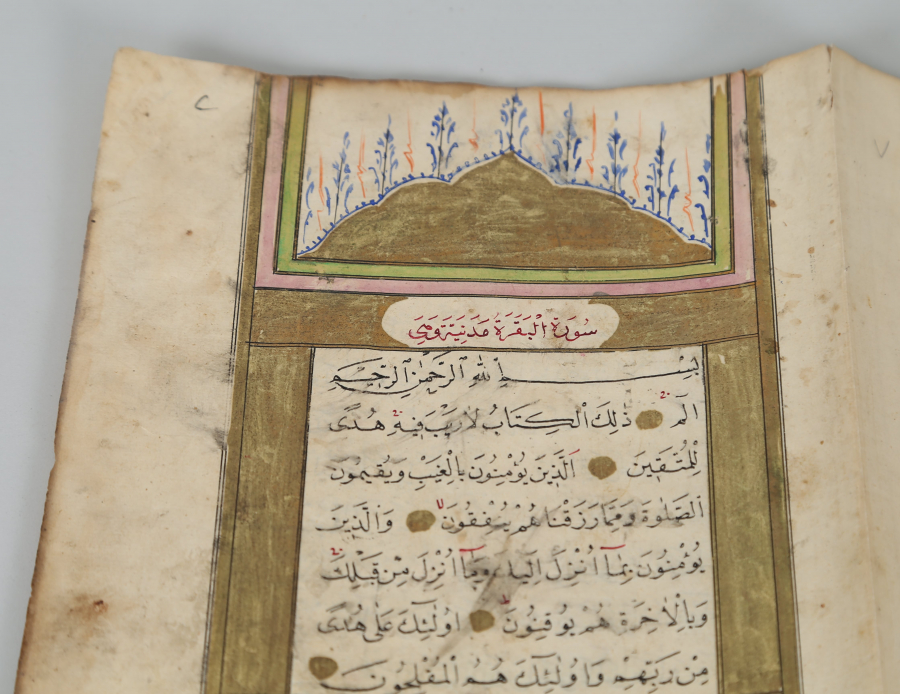 سُورَةُ الْبَقَرَةِ مَدَنِيَّةٌ وَهِيَ
بِسْمِ اللّٰهِ الرَّحْمٰنِ الرَّحِيمِ
الٓمٓ ذٰلِكَ الْكِتَابُ لَا رَيْبَ فِيهِ هُدًى
لِلْمُتَّقِينَ اَلَّذِينَ يُؤْمِنُونَ بِالْغَيْبِ وَيُقِيمُونَ
الصَّلٰوةَ وَمِمَّا رَزَقْنَاهُمْ يُنْفِقُونَ وَالَّذِينَ
يُؤْمِنُونَ بِمَٓا اُنْزِلَ اِلَيْكَ وَمَٓا اُنْزِلَ مِنْ قَبْلِكَ
وَبِالْاٰخِرَةِ هُمْ يُوقِنُونَ اُولٰٓئِكَ عَلٰى هُدًى
مِنْ رَبِّهِمْ وَاُولٰٓئِكَ هُمُ الْمُفْلِحُونَ